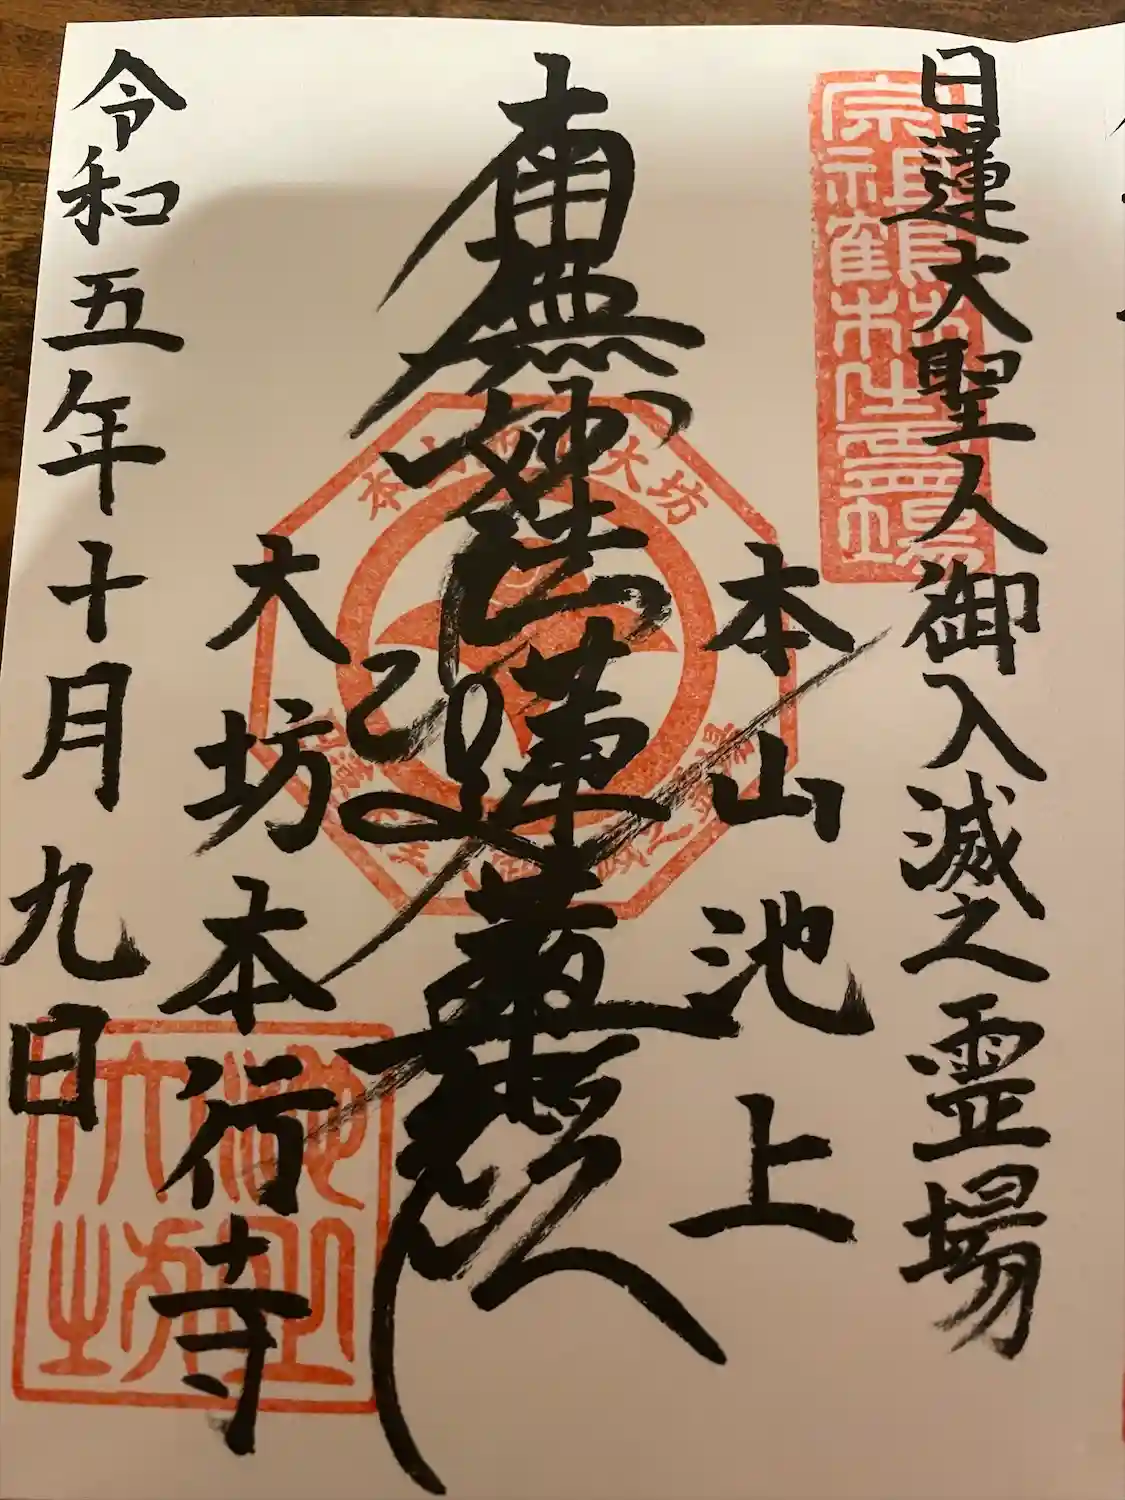 日蓮大聖人御入滅之霊場
宗祖鶴林之霊場
本山池上
南無妙法蓮華経
大坊本行寺
令和五年十月九日
池上大坊